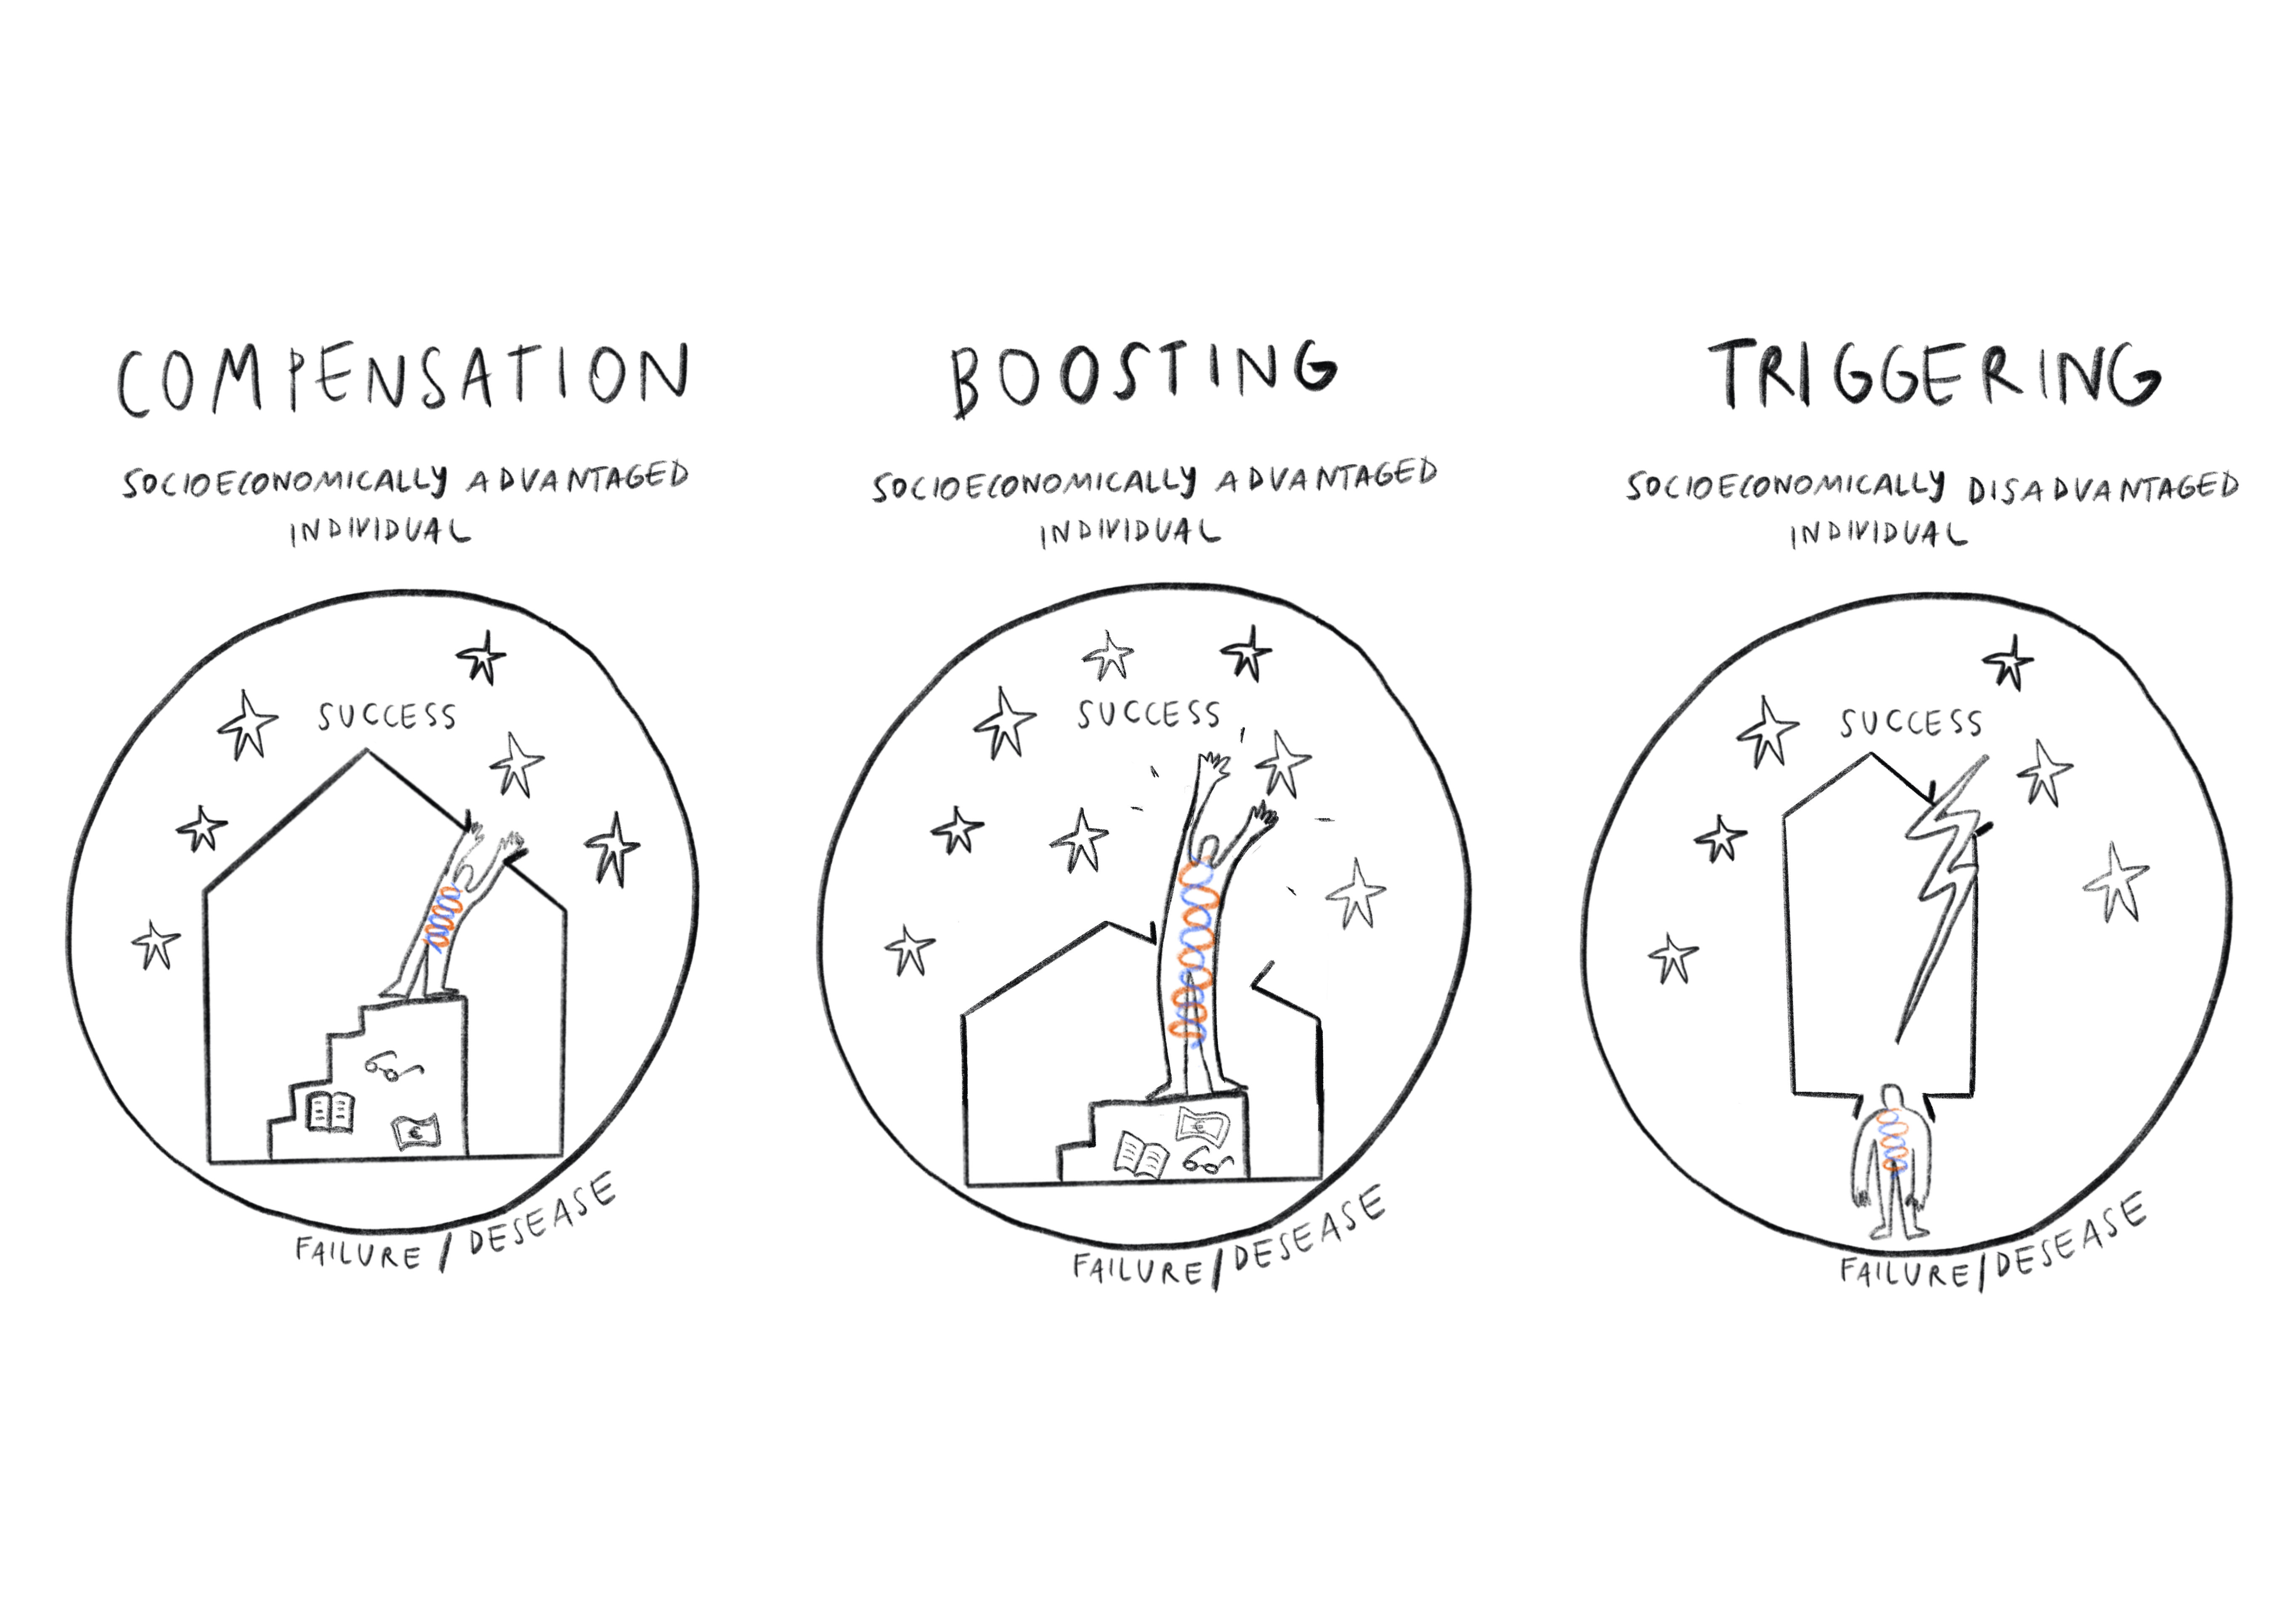 COMPENSATION
SOCIOECONOMICALLY ADVANTAGED
INDIVIDUAL
SUCCESS
€
FAILURE / DESEASE
BOOSTING
SOCIOECONOMICALLY ADVANTAGED
INDIVIDUAL
SUCCESS
€
FAILURE/DESEASE
TRIGGERING
SOCIOECONOMICALLY DISADVANTAGED
INDIVIDUAL
SUCCESS
FAILURE/DESEASE